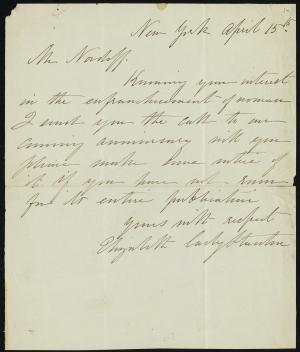 New York April 15th
Mr Nordoff.
Knowing your interest
in the enfranchisement of woman
I send you the call to our
coming anniversary will you
please make some notice of
it if you have not room
for its entire publication
yours with respect
Elizabeth Cady Stanton